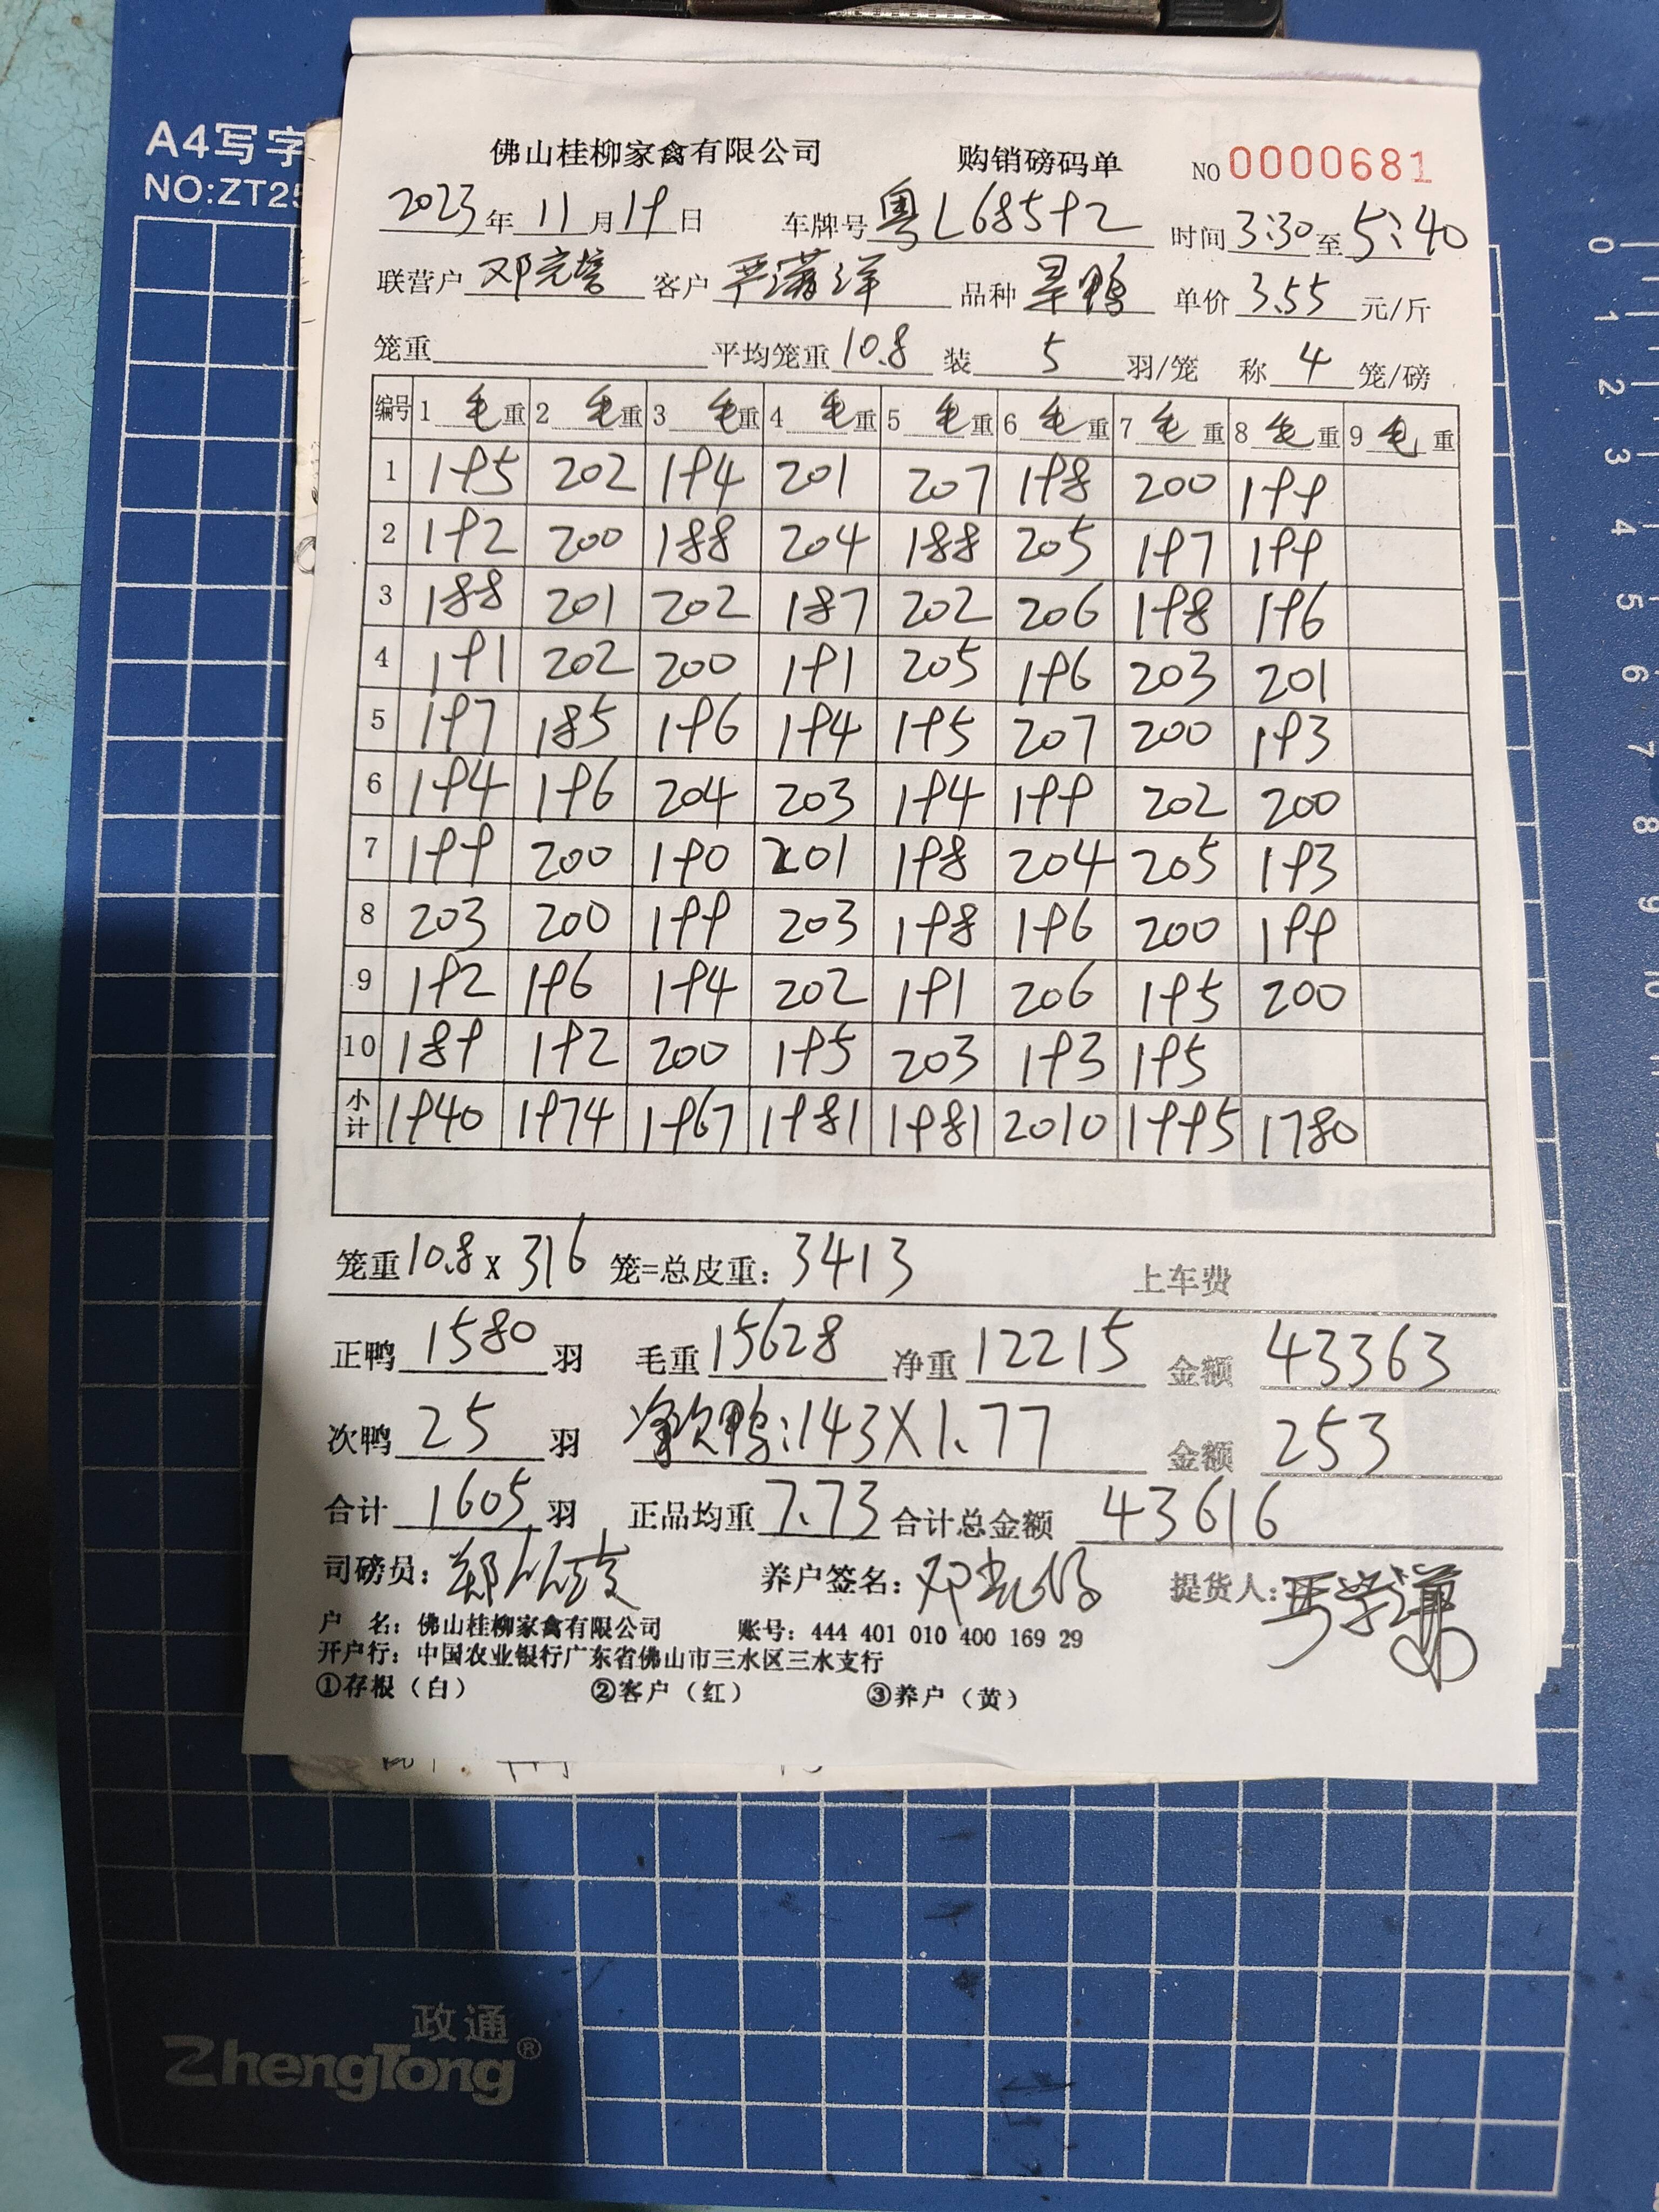 A4写字
NO:ZT25
佛山桂柳家禽有限公司 购销磅码单 NO 0000681
2023年11月19日 车牌号 粤L68592 时间 3:30 至 5:40
联营户 邓 客户 严 洋 品种 旱鸭 单价 3.55 元/斤
笼重 平均笼重 10.8 装 5 羽/笼 称 4 笼/磅
编号 1 毛重 2 毛重 3 毛重 4 毛重 5 毛重 6 毛重 7 毛重 8 毛重 9 毛重
1 195 202 194 201 207 198 200 199
2 192 200 188 204 188 205 197 199
3 188 201 202 187 202 206 198 196
4 191 202 200 191 205 196 203 201
5 197 185 196 194 195 207 200 193
6 194 196 204 203 194 199 202 200
7 199 200 190 201 198 204 205 193
8 203 200 199 203 198 196 200 199
9 192 196 194 202 191 206 195 200
10 189 192 200 195 203 193 195
小计 1940 1974 1967 1981 1981 2010 1995 1780
笼重 10.8 X 316 笼=总皮重: 3413 上车费
正鸭 1580 羽 毛重 15628 净重 12215 金额 43363
次鸭 25 羽 净次鸭:143X1.77 金额 253
合计 1605 羽 正品均重 7.73 合计总金额 43616
司磅员: 郑 养户签名: 邓 提货人:
户 名: 佛山桂柳家禽有限公司 账号: 444 401 010 400 169 29
开户行: 中国农业银行广东省佛山市三水区三水支行
①存根（白） ②客户（红） ③养户（黄）
0
1
2
3
4
5
6
7
8
9
10
政通
ZhengTong®